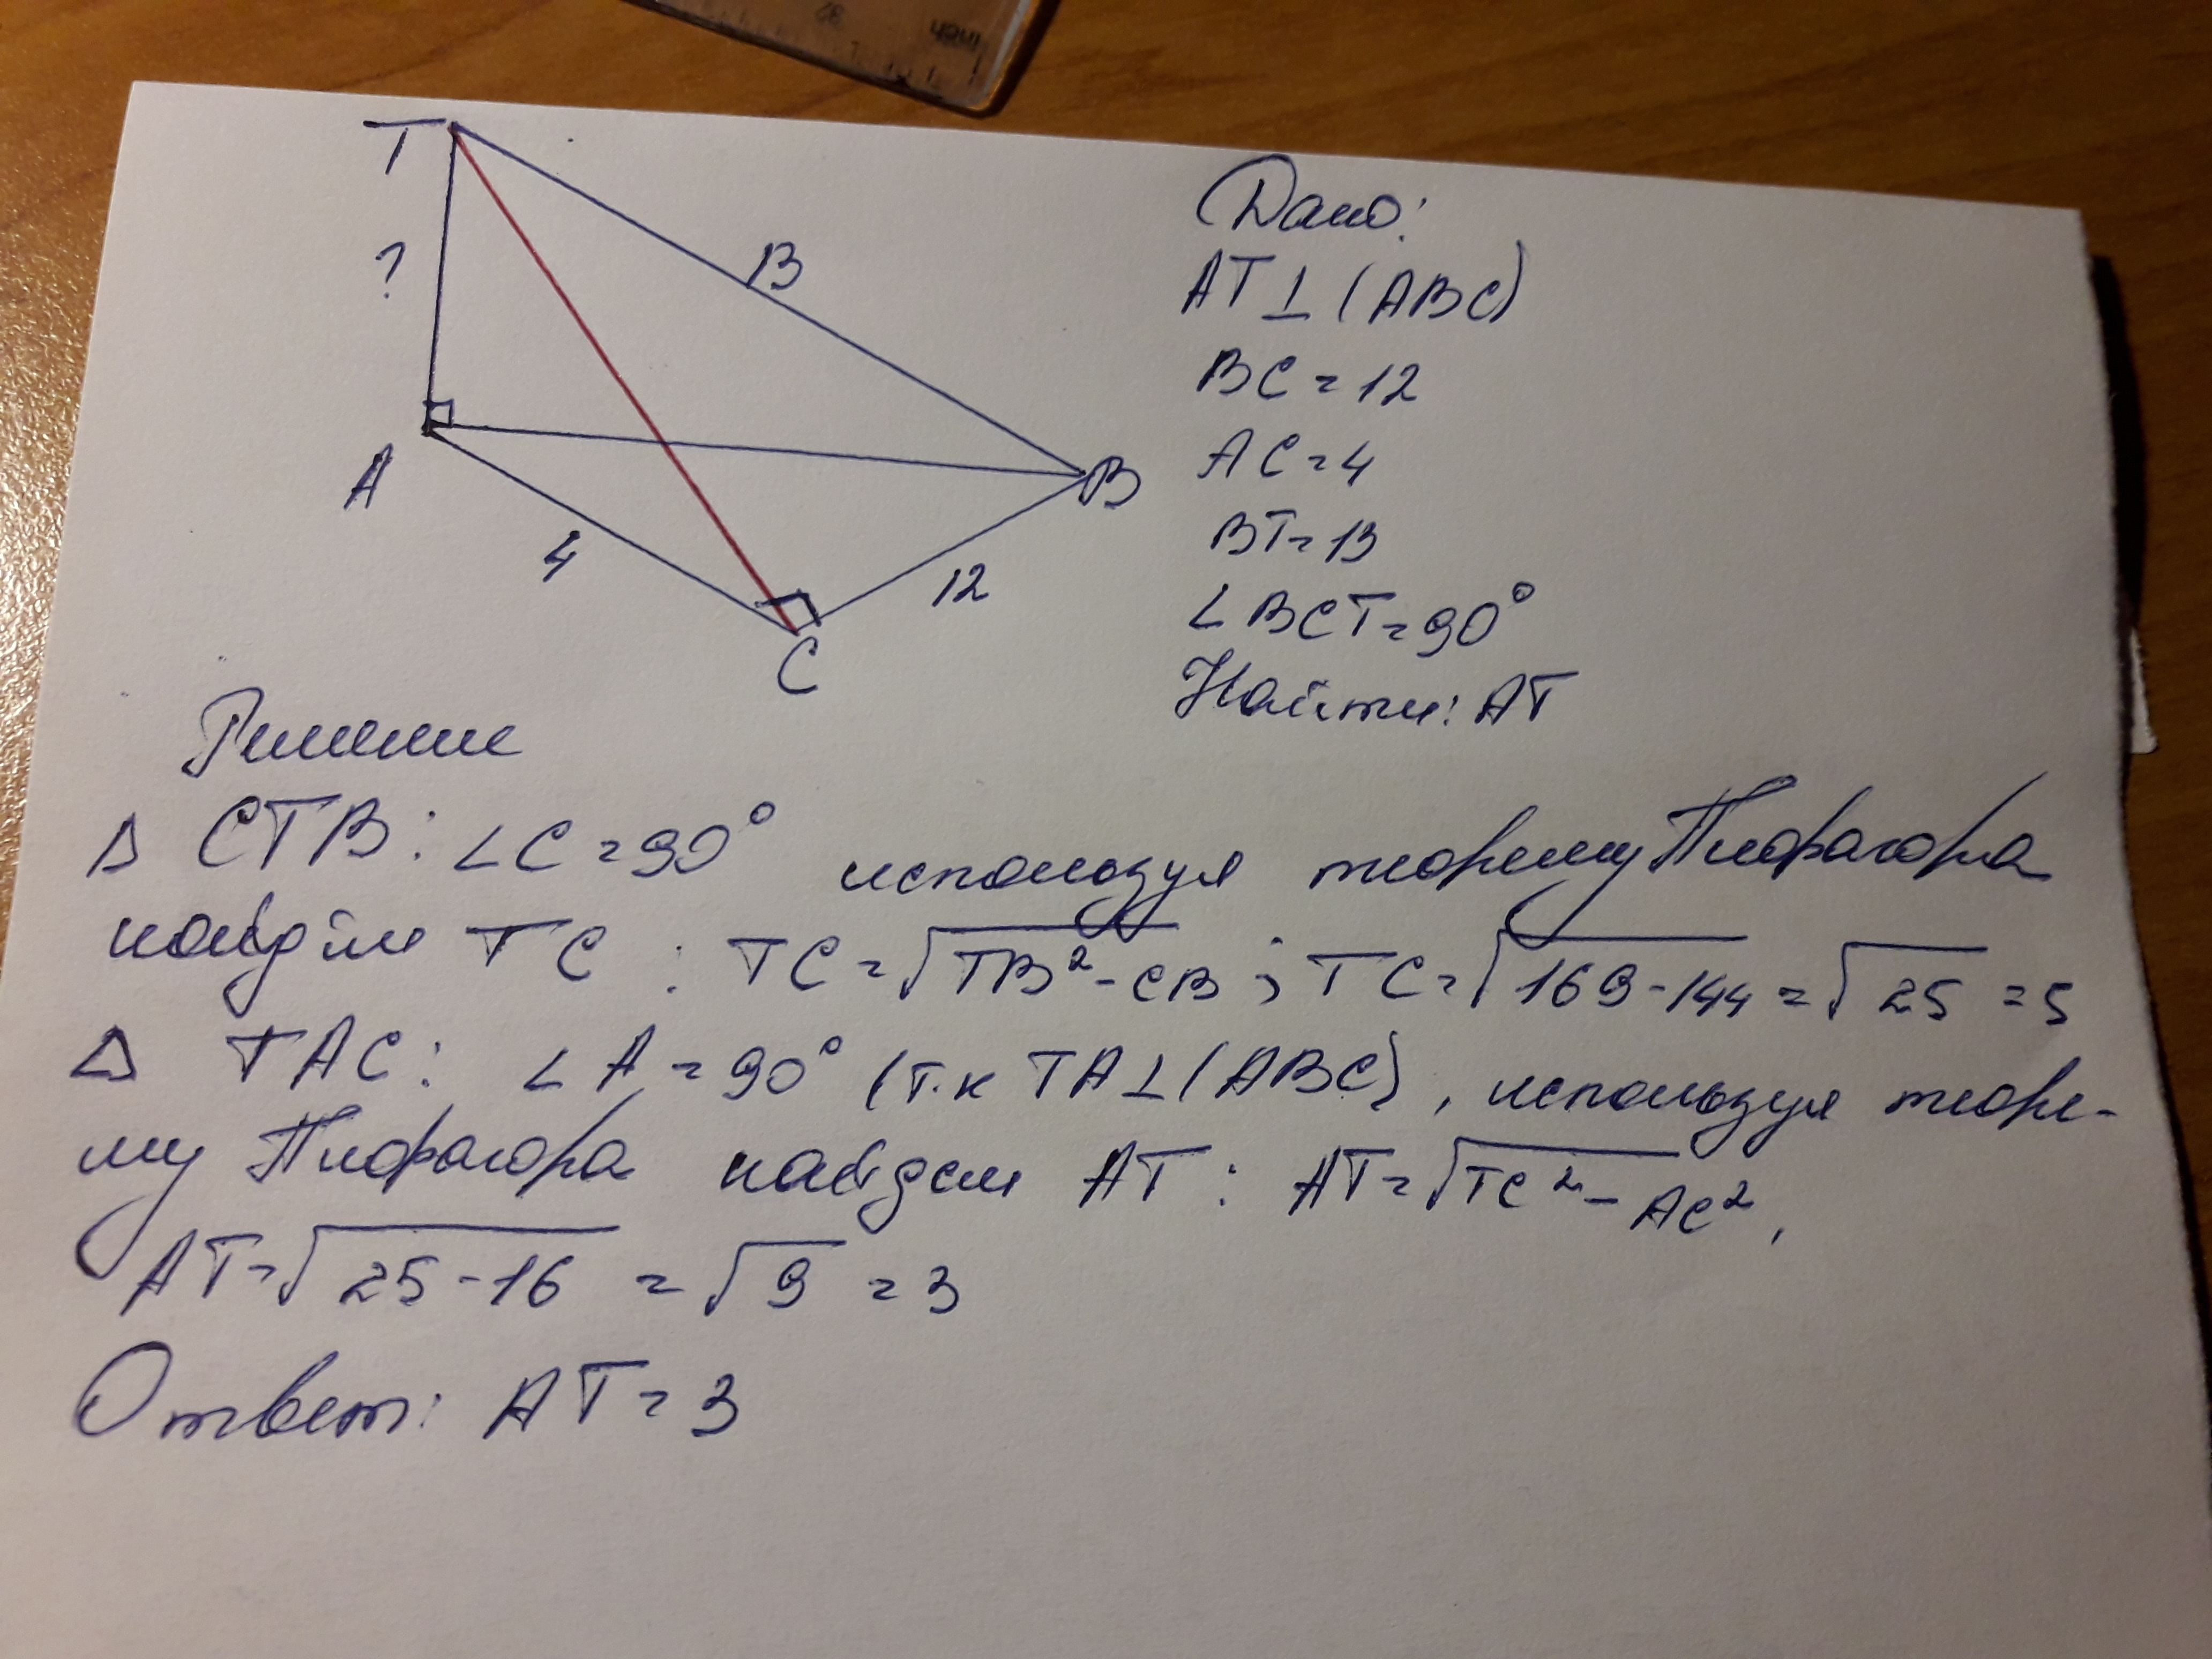 inch
32
T
?
13
A
B
4
12
C
Дано:
AT⊥(ABC)
BC=12
AC=4
BT=13
∠BCT=90°
Найти: AT
Решение
△ CTB: ∠C=90° используя теорему Пифагора
найдём TC : TC=√TB²-CB ; TC=√169-144=√25=5
△ TAC: ∠A=90° (т.к TA⊥(ABC), используя теоре-
му Пифагора найдем AT : AT=√TC²-AC²,
AT=√25-16 =√9 =3
Ответ: AT=3